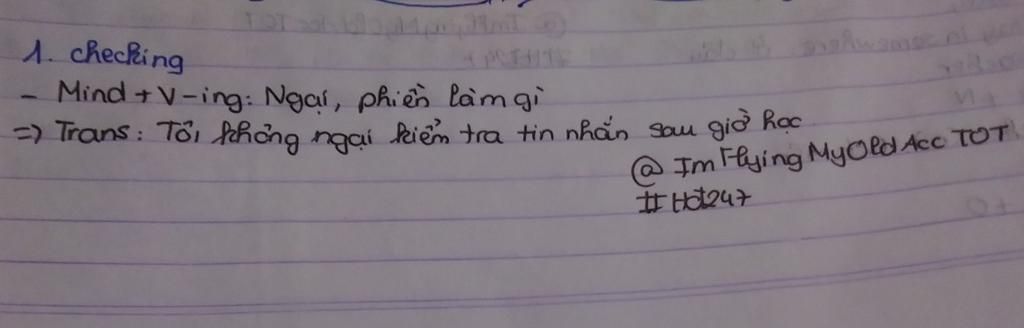 1. checking
- Mind + V-ing: Ngại, phiền làm gì
=> Trans: Tôi không ngại kiểm tra tin nhắn sau giờ học
@ ImFlyingMyOldAcc TOT
# Hdt247